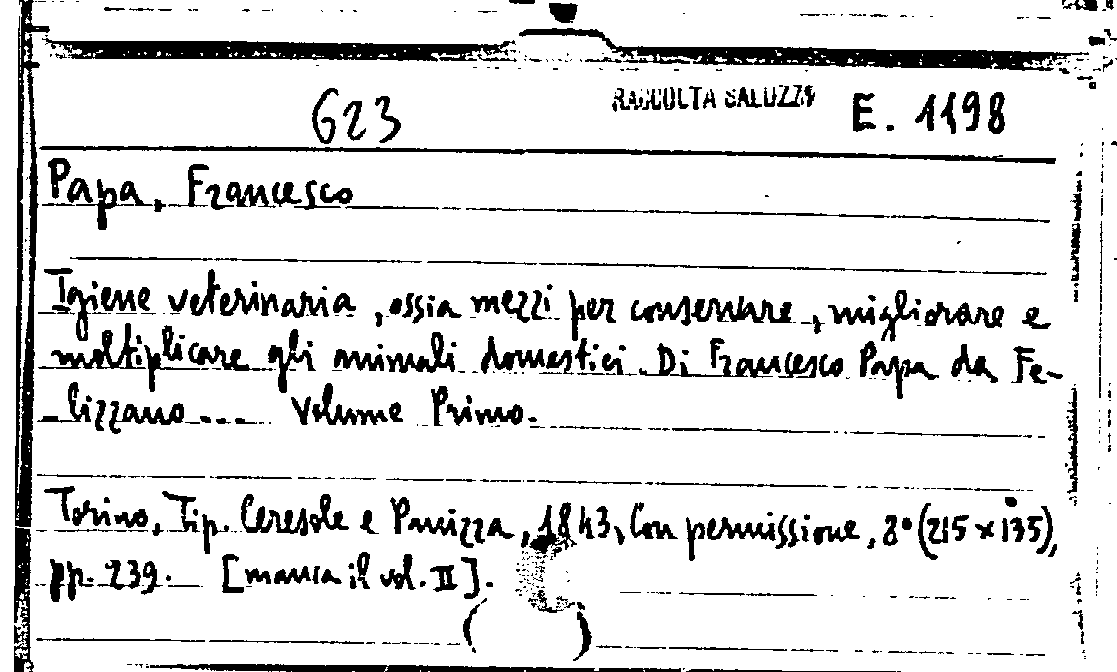 623 RACCOLTA SALUZZO E. 1198
Papa, Francesco
Igiene veterinaria, ossia mezzi per conservare, migliorare e
moltiplicare gli animali domestici. Di Francesco Papa da Fe-
-lizzano... Volume Primo.
Torino, Tip. Ceresole e Panizza, 1843, Con permissione, 8° (215 x 135),
pp. 239. [manca il vol. II].
( )